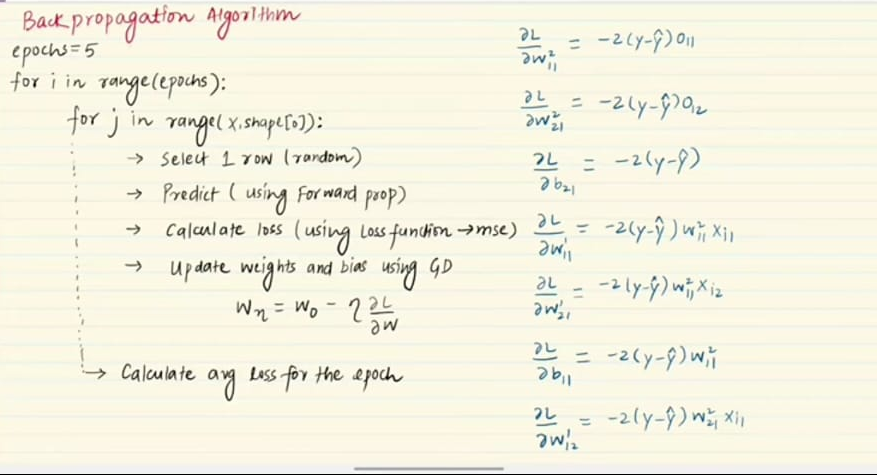 Backpropagation Algorithm
epochs=5
for i in range(epochs):
for j in range(X.shape[0]):
→ Select 1 row (random)
→ Predict (using Forward prop)
→ Calculate loss (using loss function → mse)
→ Update weights and bias using GD
Wn = W0 - η ∂L/∂W
→ Calculate avg loss for the epoch
∂L/∂W²₁₁ = -2(y-ŷ)O₁₁
∂L/∂W²₂₁ = -2(y-ŷ)O₁₂
∂L/∂b₂₁ = -2(y-ŷ)
∂L/∂W¹₁₁ = -2(y-ŷ)W²₁₁ Xi₁
∂L/∂W¹₂₁ = -2(y-ŷ)W²₁₁ Xi₂
∂L/∂b₁₁ = -2(y-ŷ)W²₁₁
∂L/∂W¹₁₂ = -2(y-ŷ)W²₂₁ Xi₁